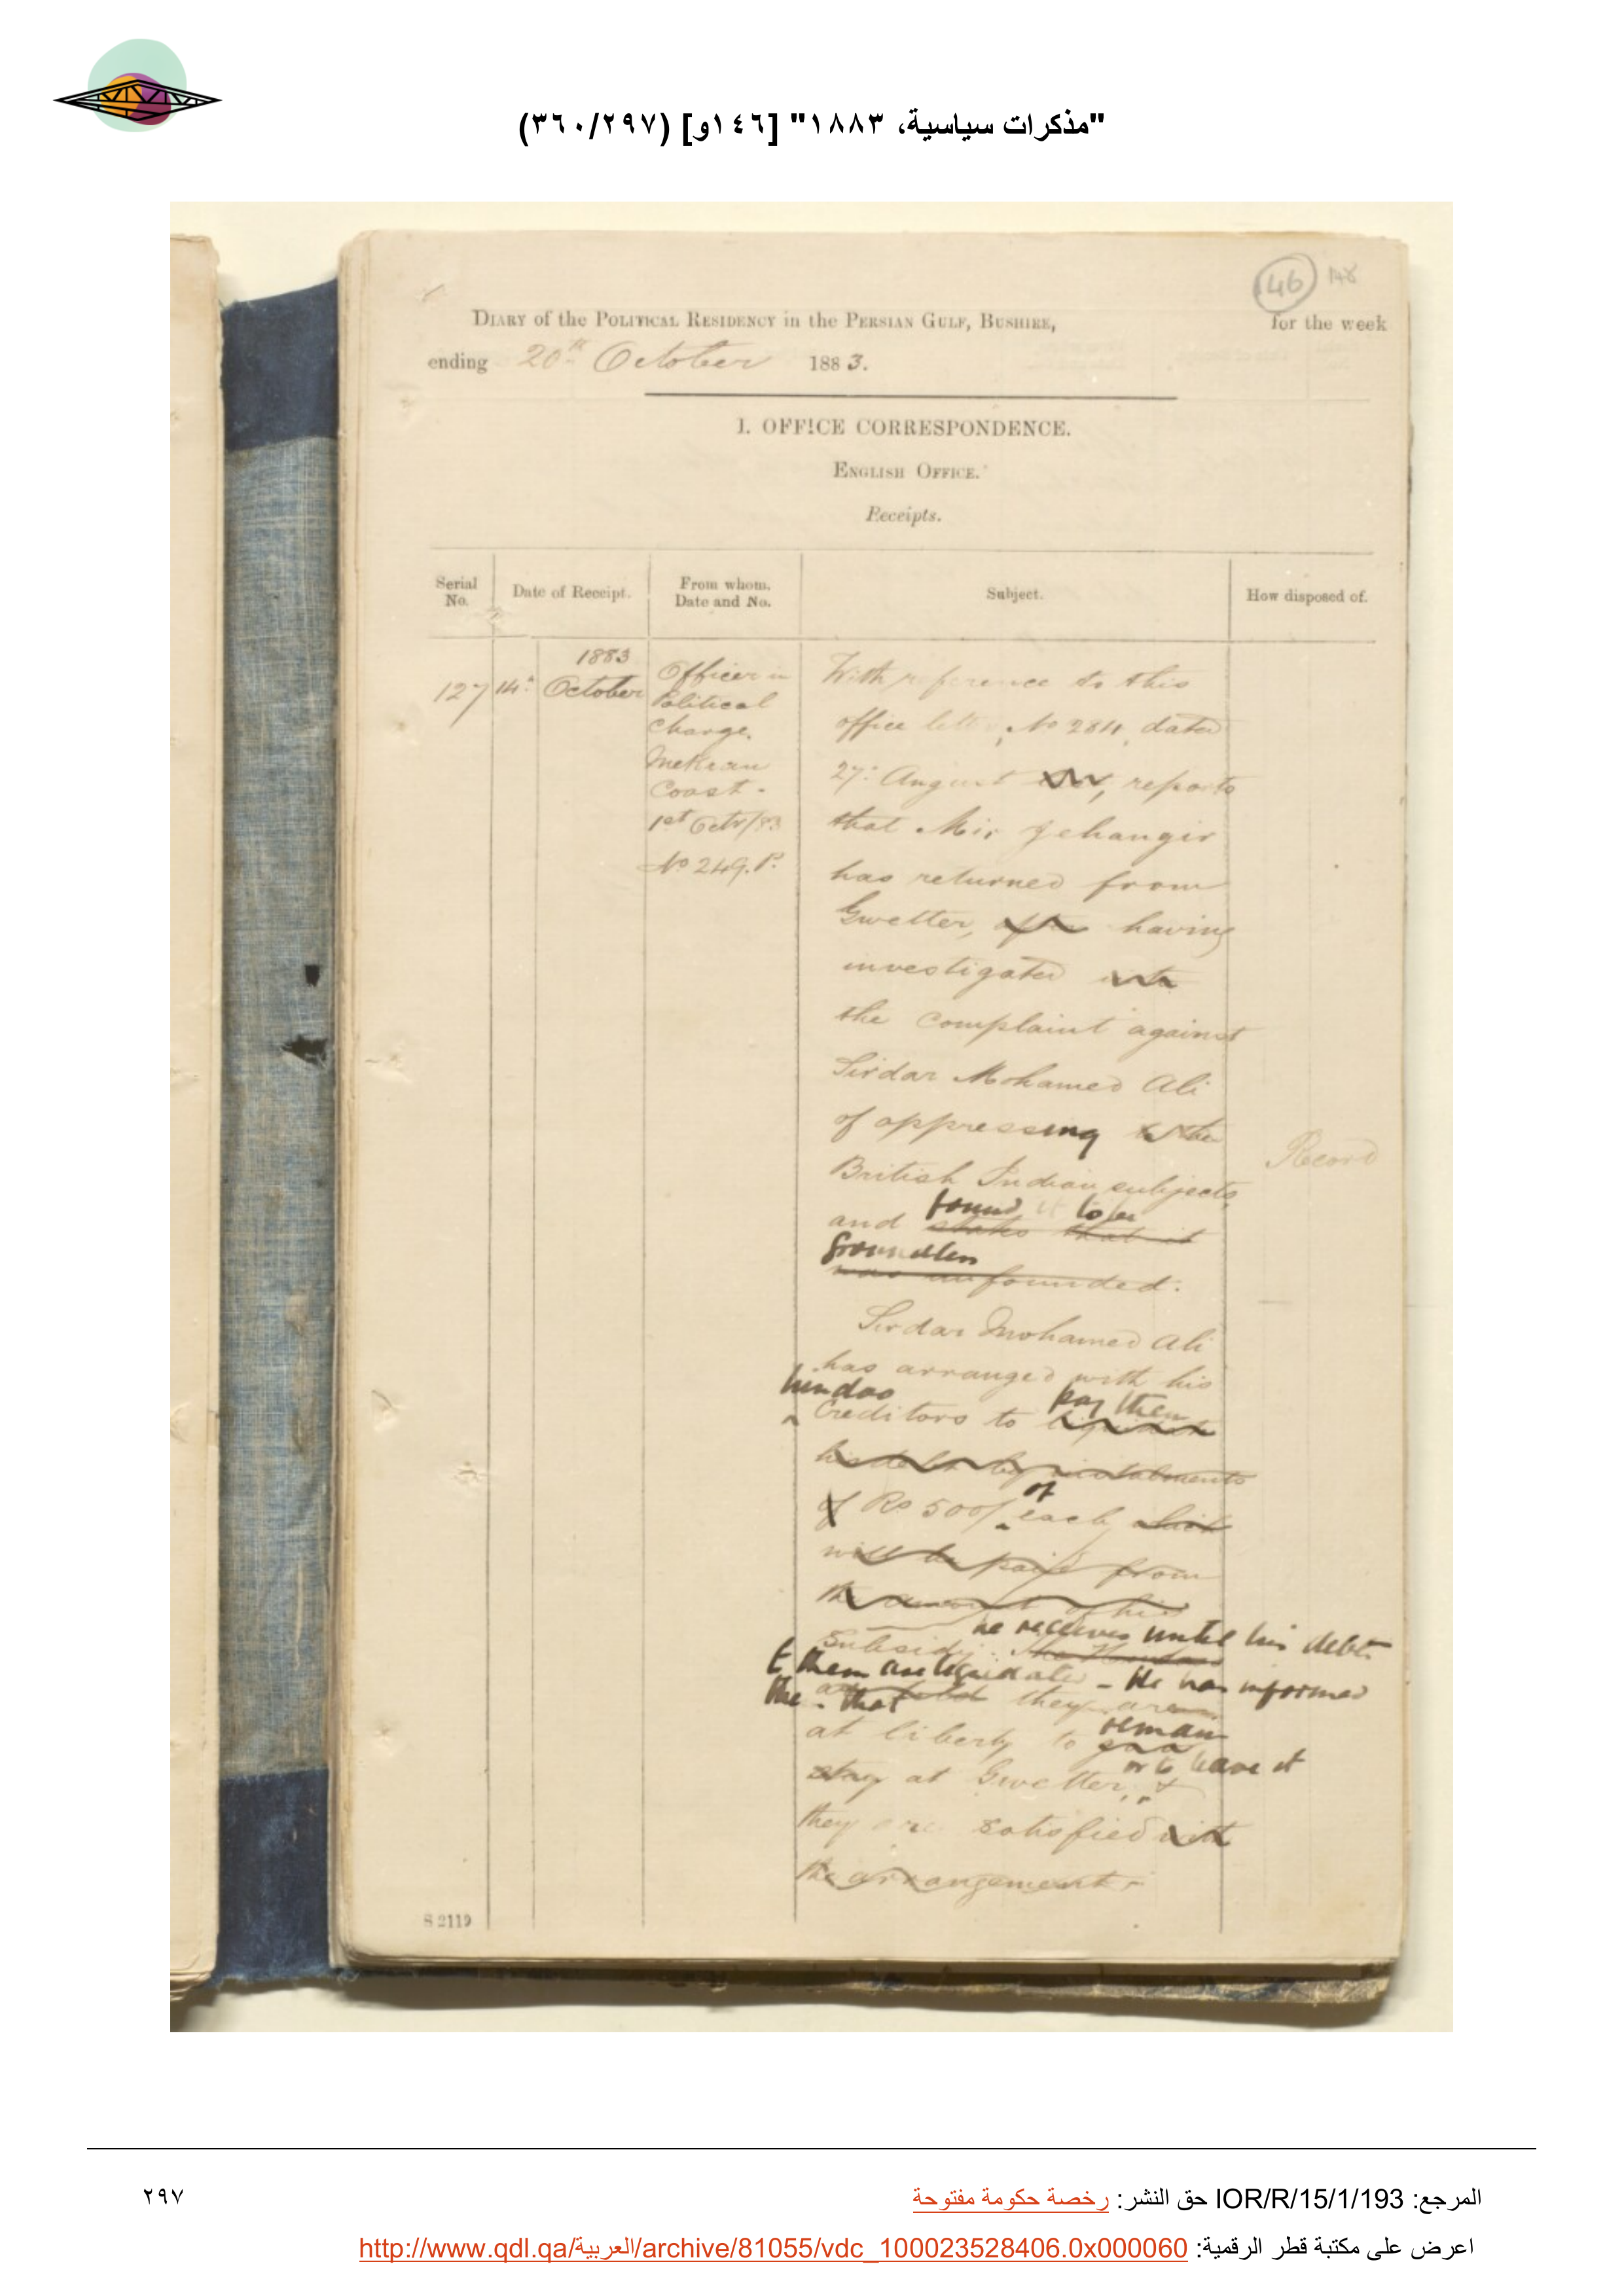 "مذكرات سياسية، ١٨٨٣" [١٤٦و] (٣٦٠/٢٩٧)
146 148
DIARY of the POLITICAL RESIDENCY in the PERSIAN GULF, BUSHIRE, for the week
ending 20th October 1883.
I. OFFICE CORRESPONDENCE.
ENGLISH OFFICE.
Receipts.
Serial No. Date of Receipt. From whom. Date and No. Subject. How disposed of.
1883
127 14th October
Officer in
Political
Charge.
Mekran
Coast.
1st Octr/83
No 249. P.
With reference to this
office letter, No 284, dated
27th August, reports
that Mir Jehangir
has returned from
Gwetter, after having
investigated into
the complaint against
Sirdar Mohamed Ali
of oppressing
British Indian subjects,
found it to be
and states that it
groundless
was unfounded.
Record
Sirdar Mohamed Ali
has arranged with his
hindoo pay them
Creditors to liquidate
his debt by instalments
of
of Rs 500/ each, which
will be paid from
the amount of his
he receives until his debt
Subsidy. The Hindoos
to them are liquidated - He has informed
the. that they are
at liberty to remain
or to leave it
stay at Gwetter, &
they are satisfied with
the arrangement.
S 2119
المرجع: IOR/R/15/1/193 حق النشر: رخصة حكومة مفتوحة
٢٩٧
اعرض على مكتبة قطر الرقمية: http://www.qdl.qa/العربية/archive/81055/vdc_100023528406.0x000060